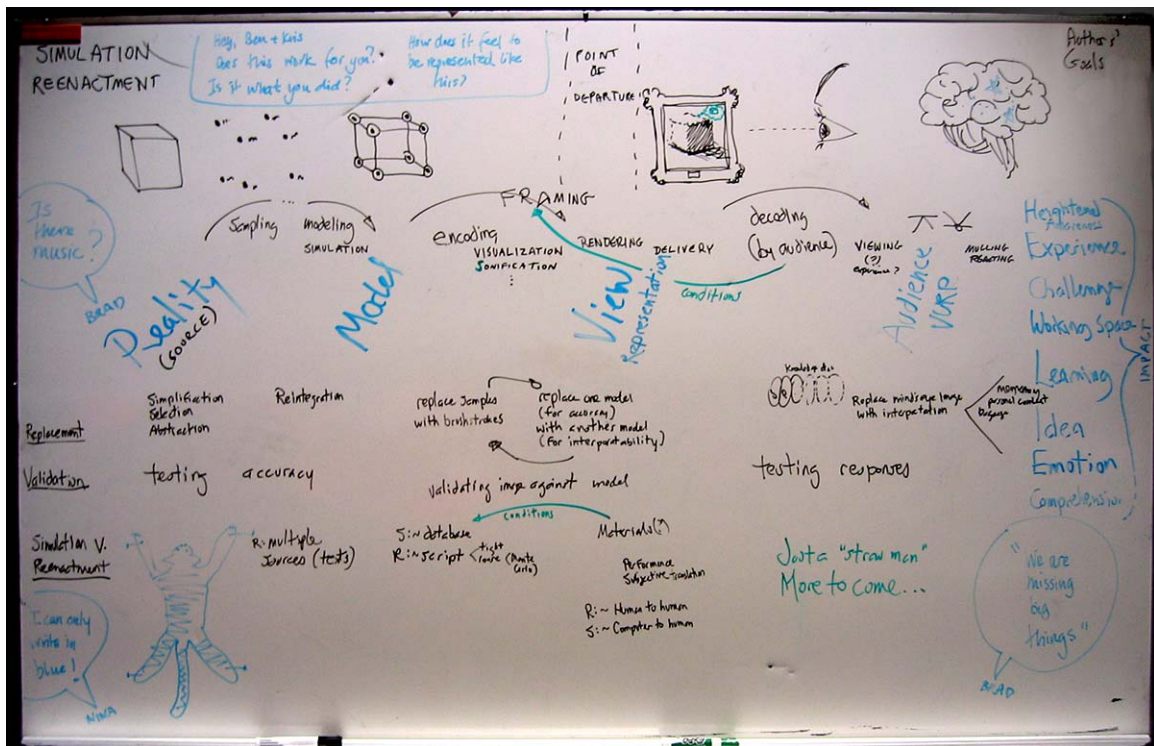 SIMULATION
REENACTMENT
Hey, Ben + Kris
Does this work for you?
Is it what you did?
How does it feel to
be represented like
this?
POINT
OF
DEPARTURE
Authors'
Goals
Is
there
music?
BRAD
Sampling ... modeling
SIMULATION
FRAMING
encoding
VISUALIZATION
SONIFICATION
RENDERING
DELIVERY
conditions
decoding
(by audience)
VIEWING
(?)
experience?
MULLING
REACTING
Reality
(SOURCE)
Model
View
Representation
Audience
VURP
Heightened
Awareness
Experience
Challenge
Working Space
Learning
Idea
Emotion
Comprehension
IMPACT
Replacement
Simplification
Selection
Abstraction
Reintegration
replace samples
with brushstrokes
replace one model
(for accuracy)
with another model
(for interpretability)
Knowledge
Replace minds eye image
with interpretation
personal
baggage
Validation
testing accuracy
validating image against model
testing responses
Simulation v.
Reenactment
R: multiple
Sources (texts)
conditions
S: ~ database
R: ~ script
tight
route (Monte
Carlo)
Materials(?)
Performance
Subjective-translation
R: ~ Human to human
S: ~ Computer to human
Just a "straw man"
More to come...
I can only
write in
blue!
NINA
"We are
missing
big
things"
BRAD